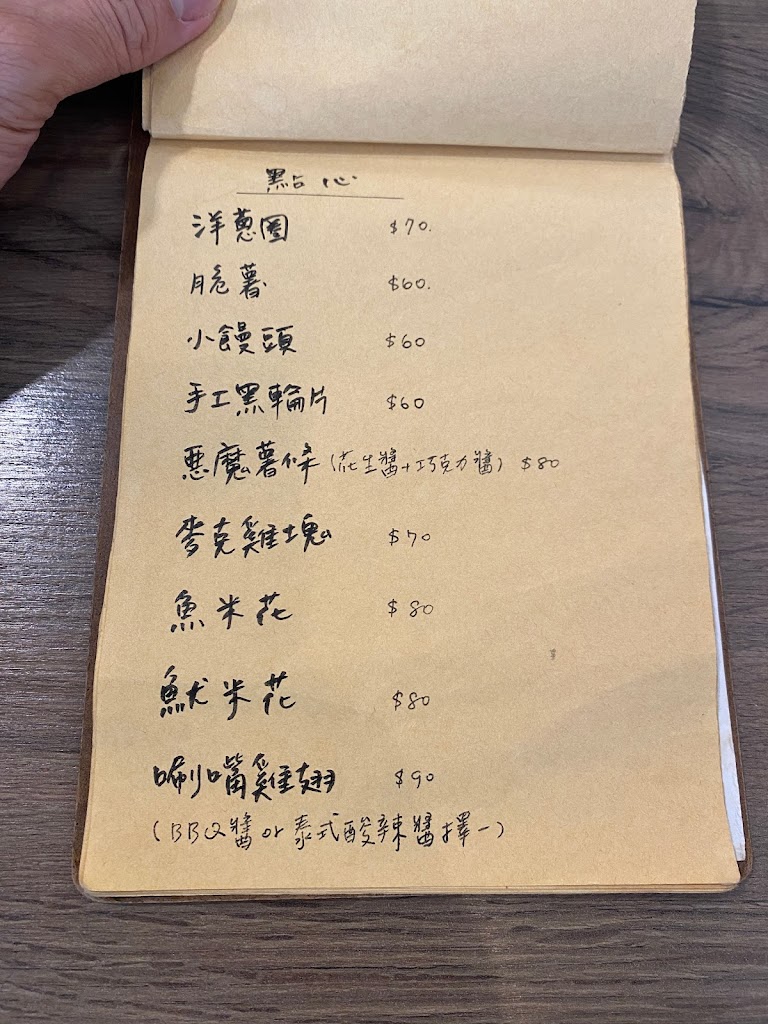 點心
洋蔥圈 $70.
脆薯 $60.
小饅頭 $60
手工黑輪片 $60
惡魔薯條(花生醬+巧克力醬) $80
麥克雞塊 $70
魚米花 $80
魷米花 $80
唰嘴雞翅 $90
(BBQ醬 or 泰式酸辣醬擇一)